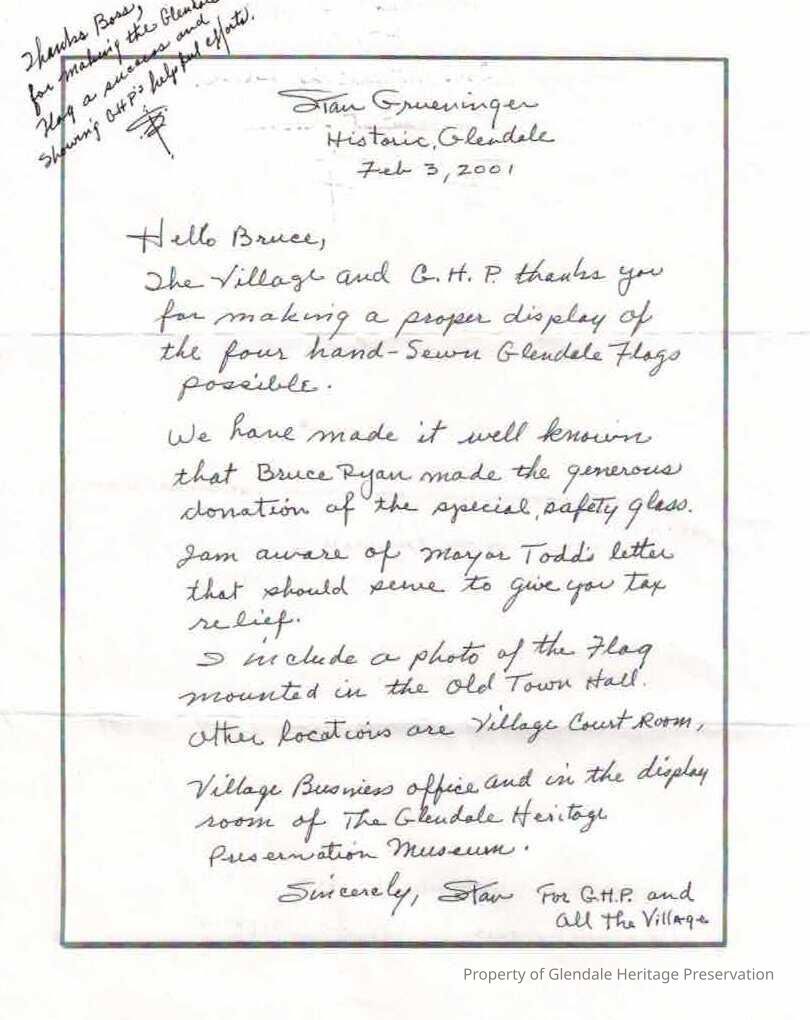 Thanks Boss,
for making the Glendale
Flag a success and
showing GHP's helpful efforts.
Stan Grueninger
Historic, Glendale
Feb 3, 2001
Hello Bruce,
The Village and G.H.P. thanks you
for making a proper display of
the four hand-Sewn Glendale Flags
possible.
We have made it well known
that Bruce Ryan made the generous
donation of the special, safety glass.
I am aware of Mayor Todd's letter
that should serve to give you tax
relief.
I include a photo of the Flag
mounted in the Old Town Hall.
Other locations are Village Court Room,
Village Business office and in the display
room of The Glendale Heritage
Preservation Museum.
Sincerely, Stan For G.H.P. and
all The Village
Property of Glendale Heritage Preservation